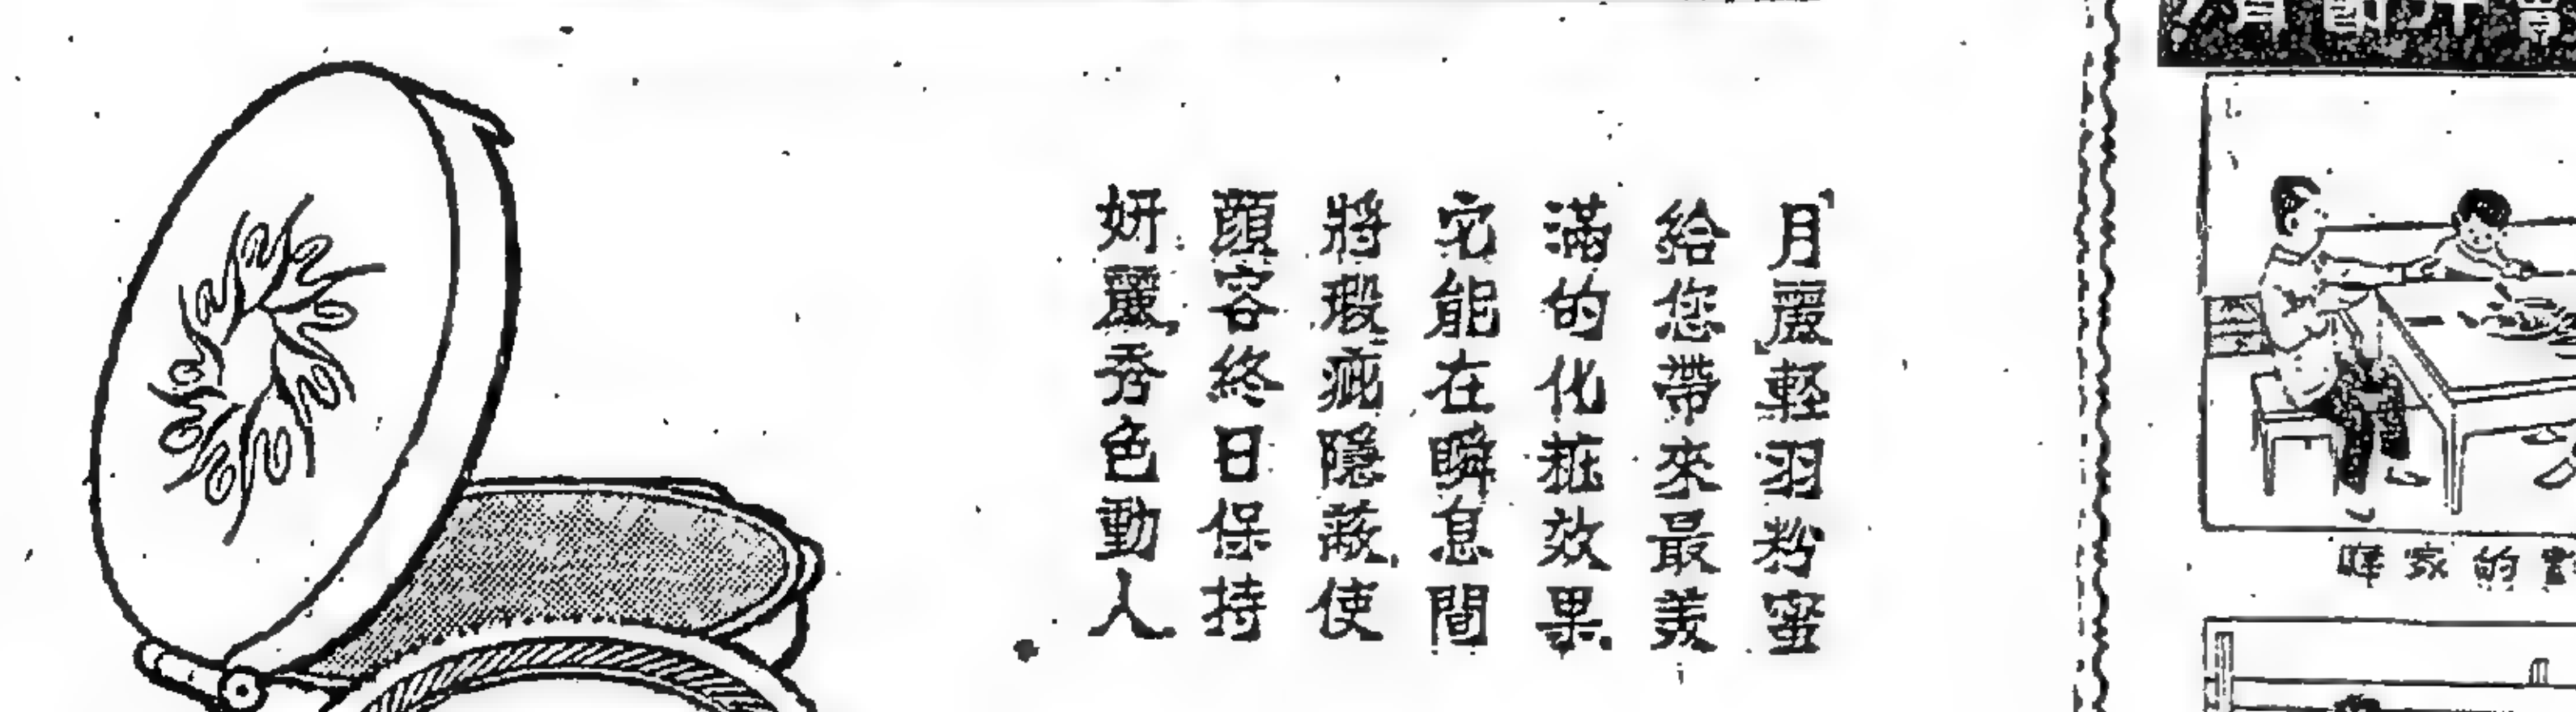 月麗輕羽粉蜜
給您帶來最美
滿的化粧效果
它能在瞬息間
將瑕疵隱蔽使
顏容終日保持
妍麗秀色動人
家的